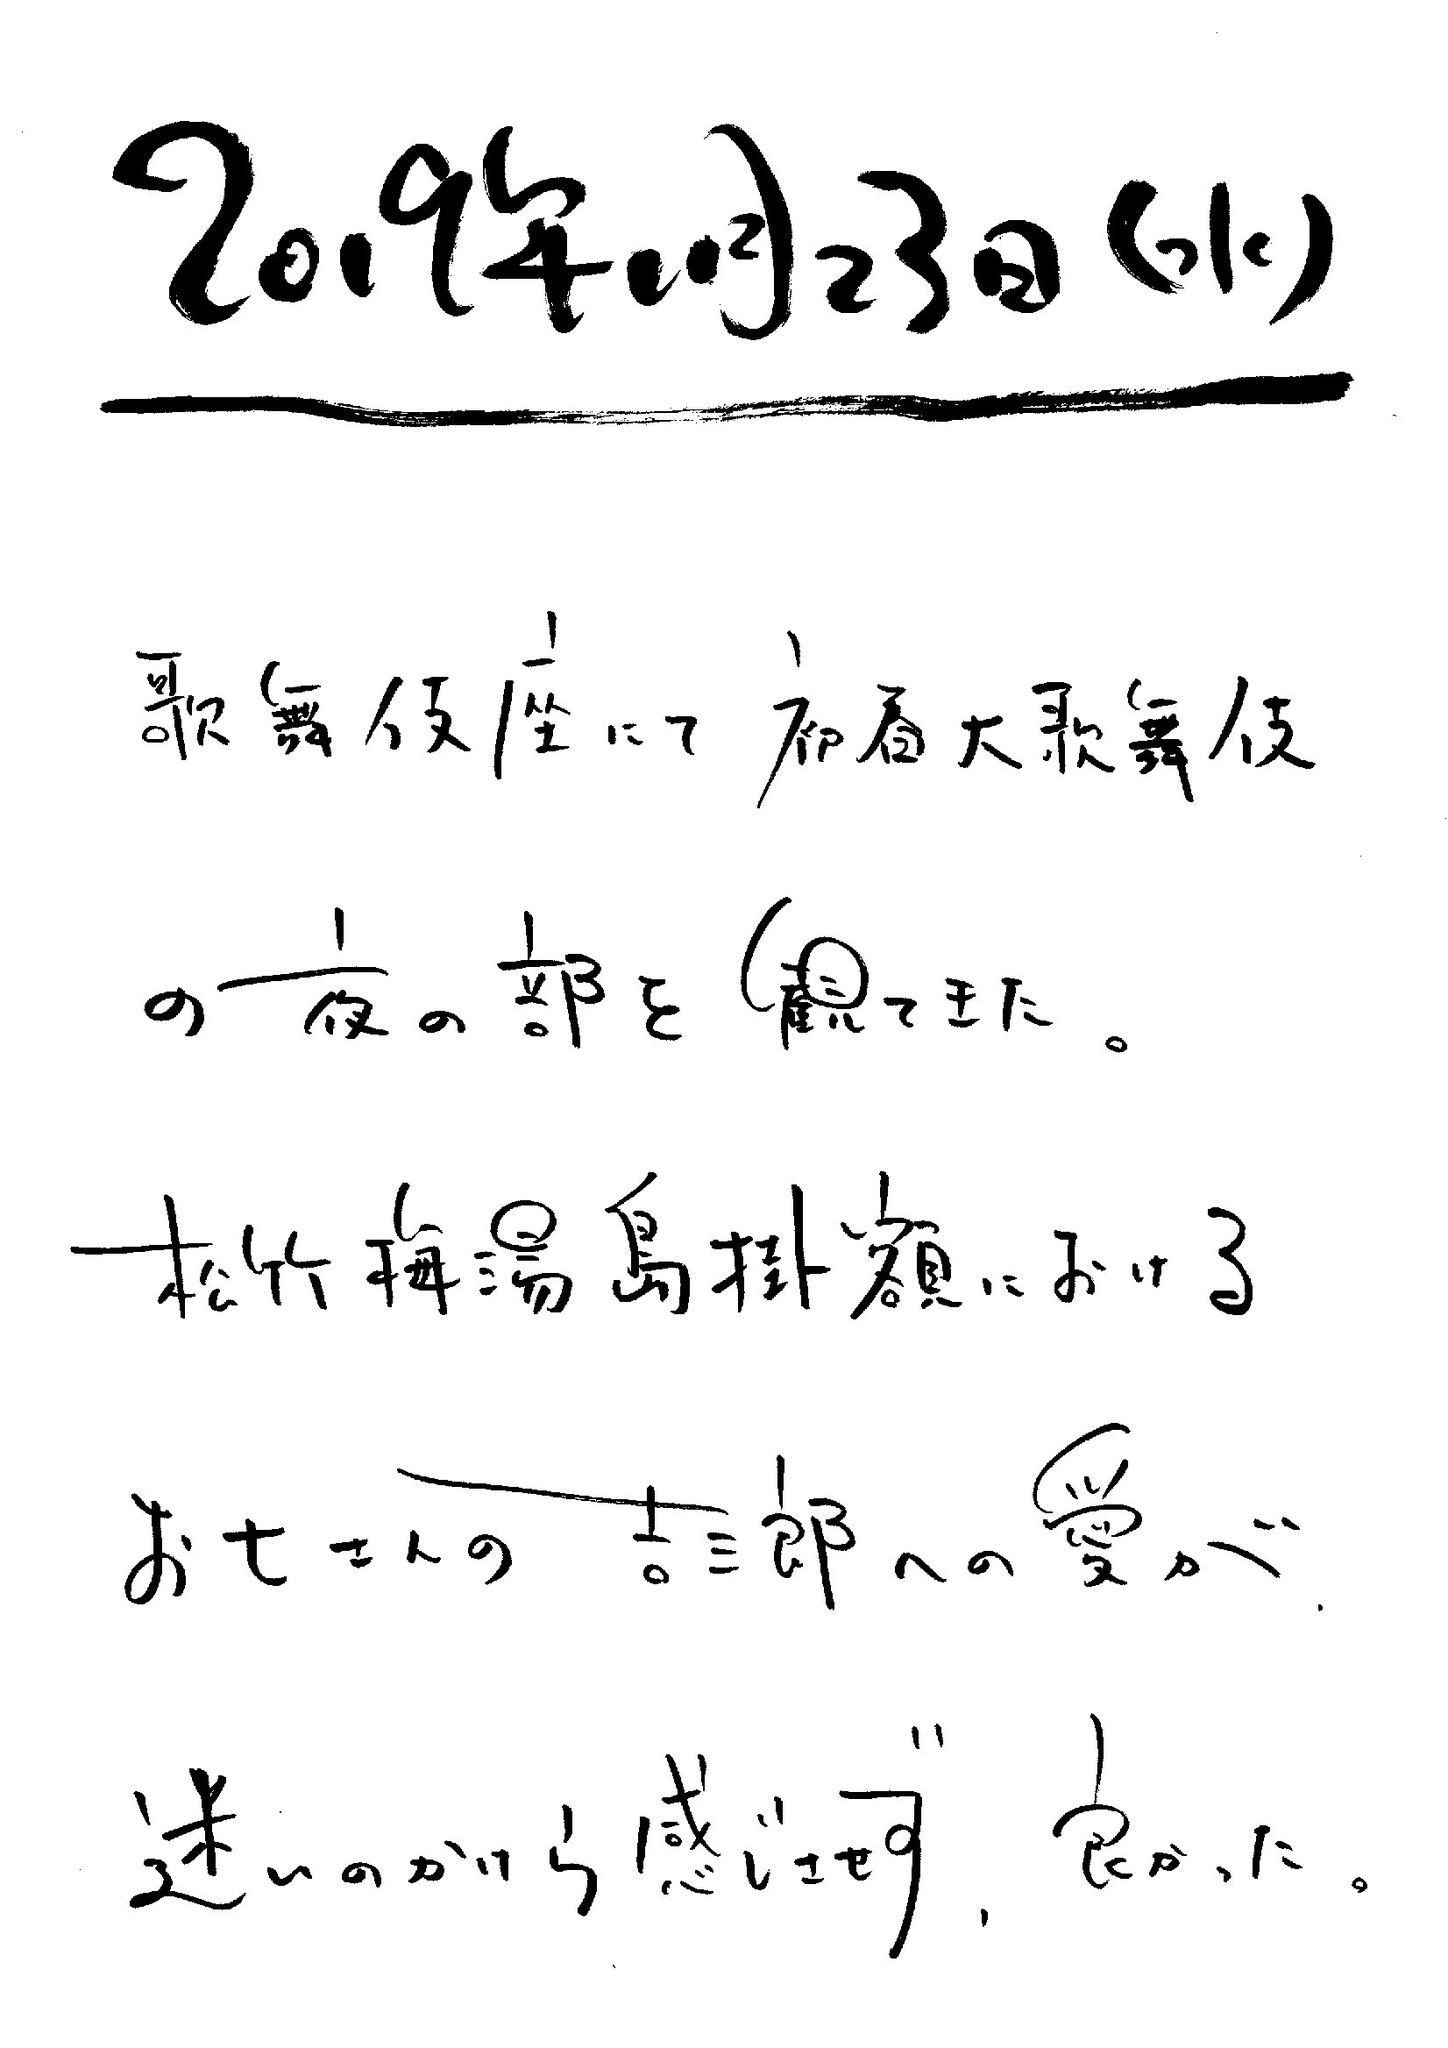 2019年1月23日(水)
歌舞伎座にて初春大歌舞伎
の夜の部を観てきた。
松竹梅湯島掛額における
お七さんの吉三郎への愛が、
迷いのかけら感じさせず、良かった。